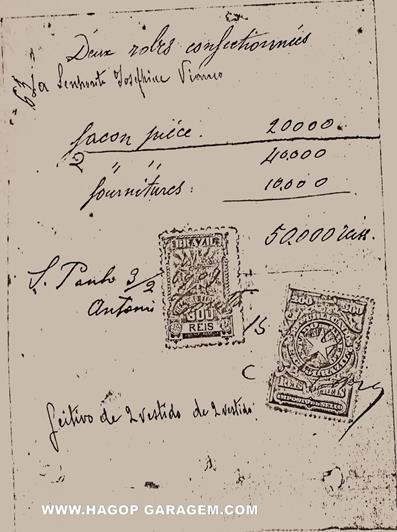 Deux robes confectionnées
a Senhorita Josephina Vianco
façon pièce. 20000
2 " " 40,000
fournitures: 10,000
50,000 reis.
S. Paulo 3/2
Antoni
BRAZIL
300
REIS
15
300 300
REIS REIS
IMPOSTO DO SELLO
feitivo de 2 vestido de 2 vestido
WWW.HAGOP GARAGEM.COM